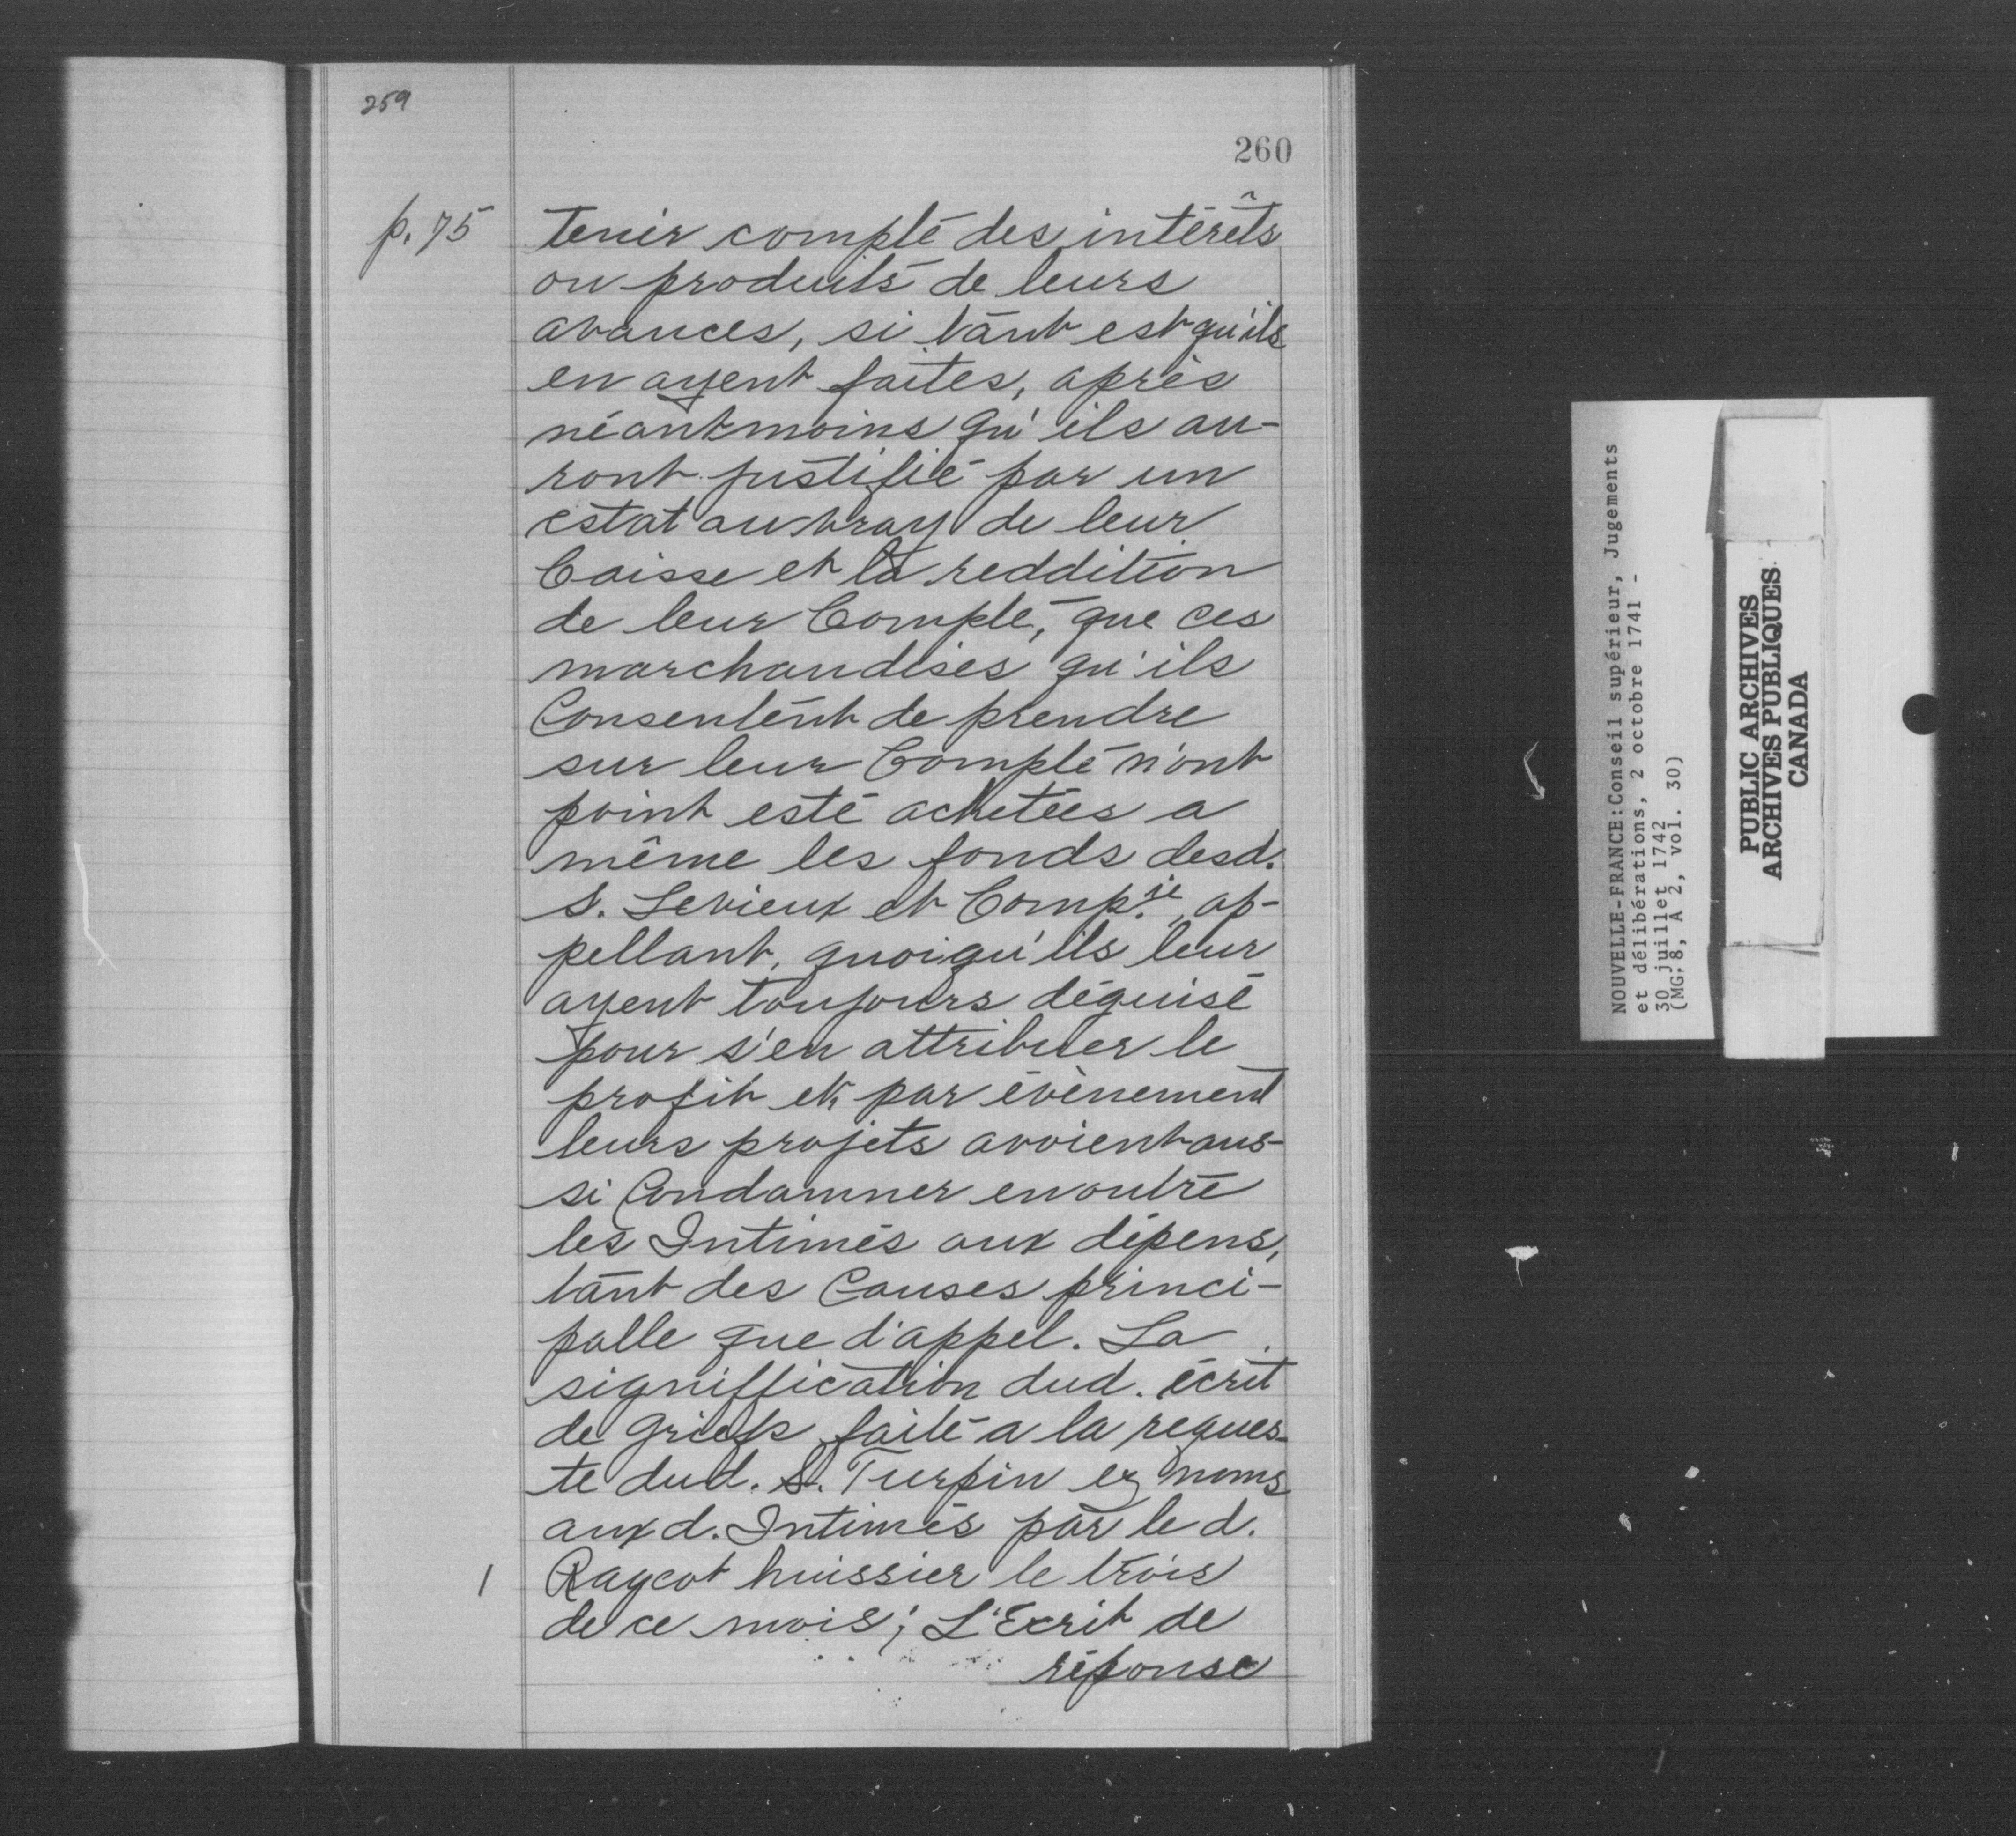 259
260
p. 75
tenir compte des intérêts
ou produits de leurs
avances, si tant est qu'ils
en ayent faites, après
néantmoins qu'ils au-
ront justifié par un
estat au vray de leur
Caisse et la reddition
de leur Compte, que ces
marchandises qu'ils
Consentent de prendre
sur leur Compte n'ont
point esté achetées a
même les fonds desd.
S. Levieux et Comp.ie, ap-
pellant, quoiqu'ils leur
ayent toujours déguisé
pour s'en attribuer le
profit et par évènement
leurs projets avoient aus-
si Condamner en outre
les Intimés aux dépens,
tant des Causes princi-
palle que d'appel. La
signiffication dud. écrit
de griefs faite a la reques-
te dud. S. Turpin ez noms
aux d. Intimés par le d.
1
Rageot huissier le trois
de ce mois; L'Ecrit de
réponse
NOUVELLE-FRANCE: Conseil supérieur, Jugements
et délibérations, 2 octobre 1741 -
30 juillet 1742
(MG 8, A 2, vol. 30)
PUBLIC ARCHIVES
ARCHIVES PUBLIQUES
CANADA